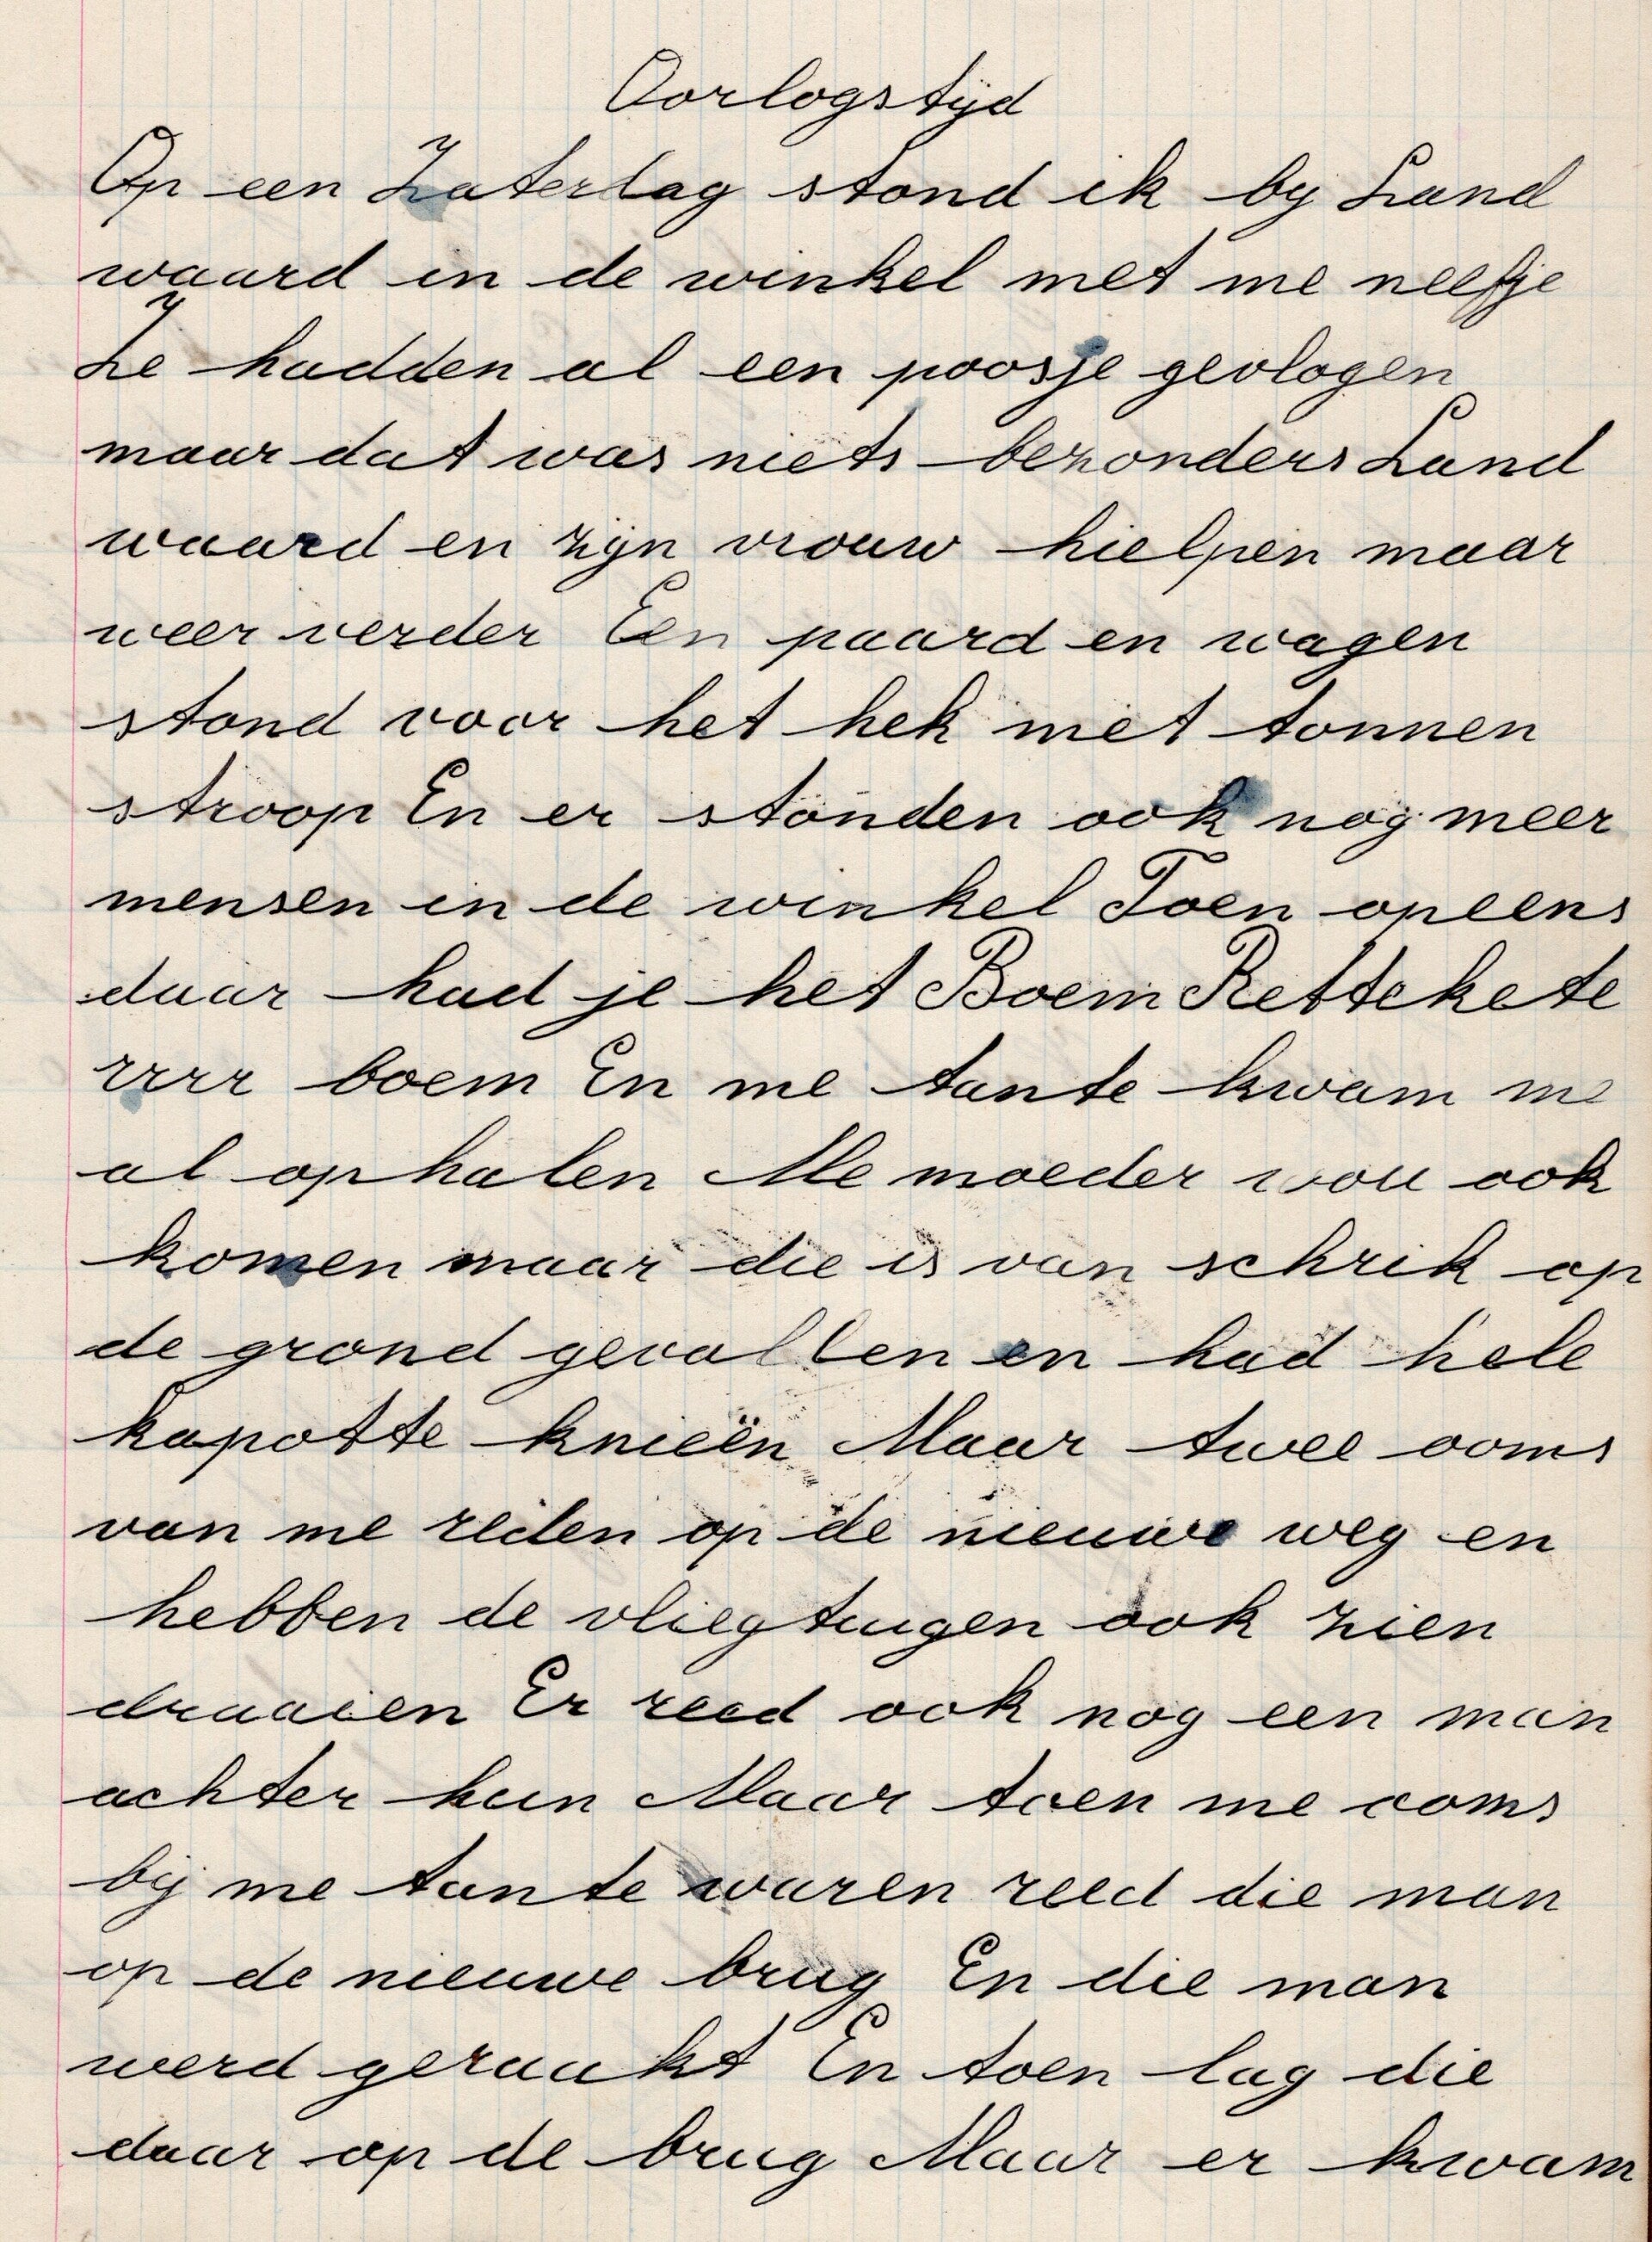 Oorlogstijd
Op een Zaterdag stond ik bij Land
waard in de winkel met me neefje
Ze hadden al een poosje gevlogen
maar dat was niets bezonders Land
waard en zijn vrouw hielpen maar
weer verder Een paard en wagen
stond voor het hek met tonnen
stroop En er stonden ook nog meer
mensen in de winkel Toen opeens
daar had je het Boem Rettekete
rrrr boem En me tante kwam me
al ophalen Me moeder wou ook
komen maar die is van schrik op
de grond gevallen en had hele
kapotte knieën Maar twee ooms
van me reden op de nieuwe weg en
hebben de vliegtuigen ook zien
draaien Er reed ook nog een man
achter hun Maar toen me ooms
bij me tante waren reed die man
op de nieuwe brug En die man
werd geraakt En toen lag die
daar op de brug Maar er kwam